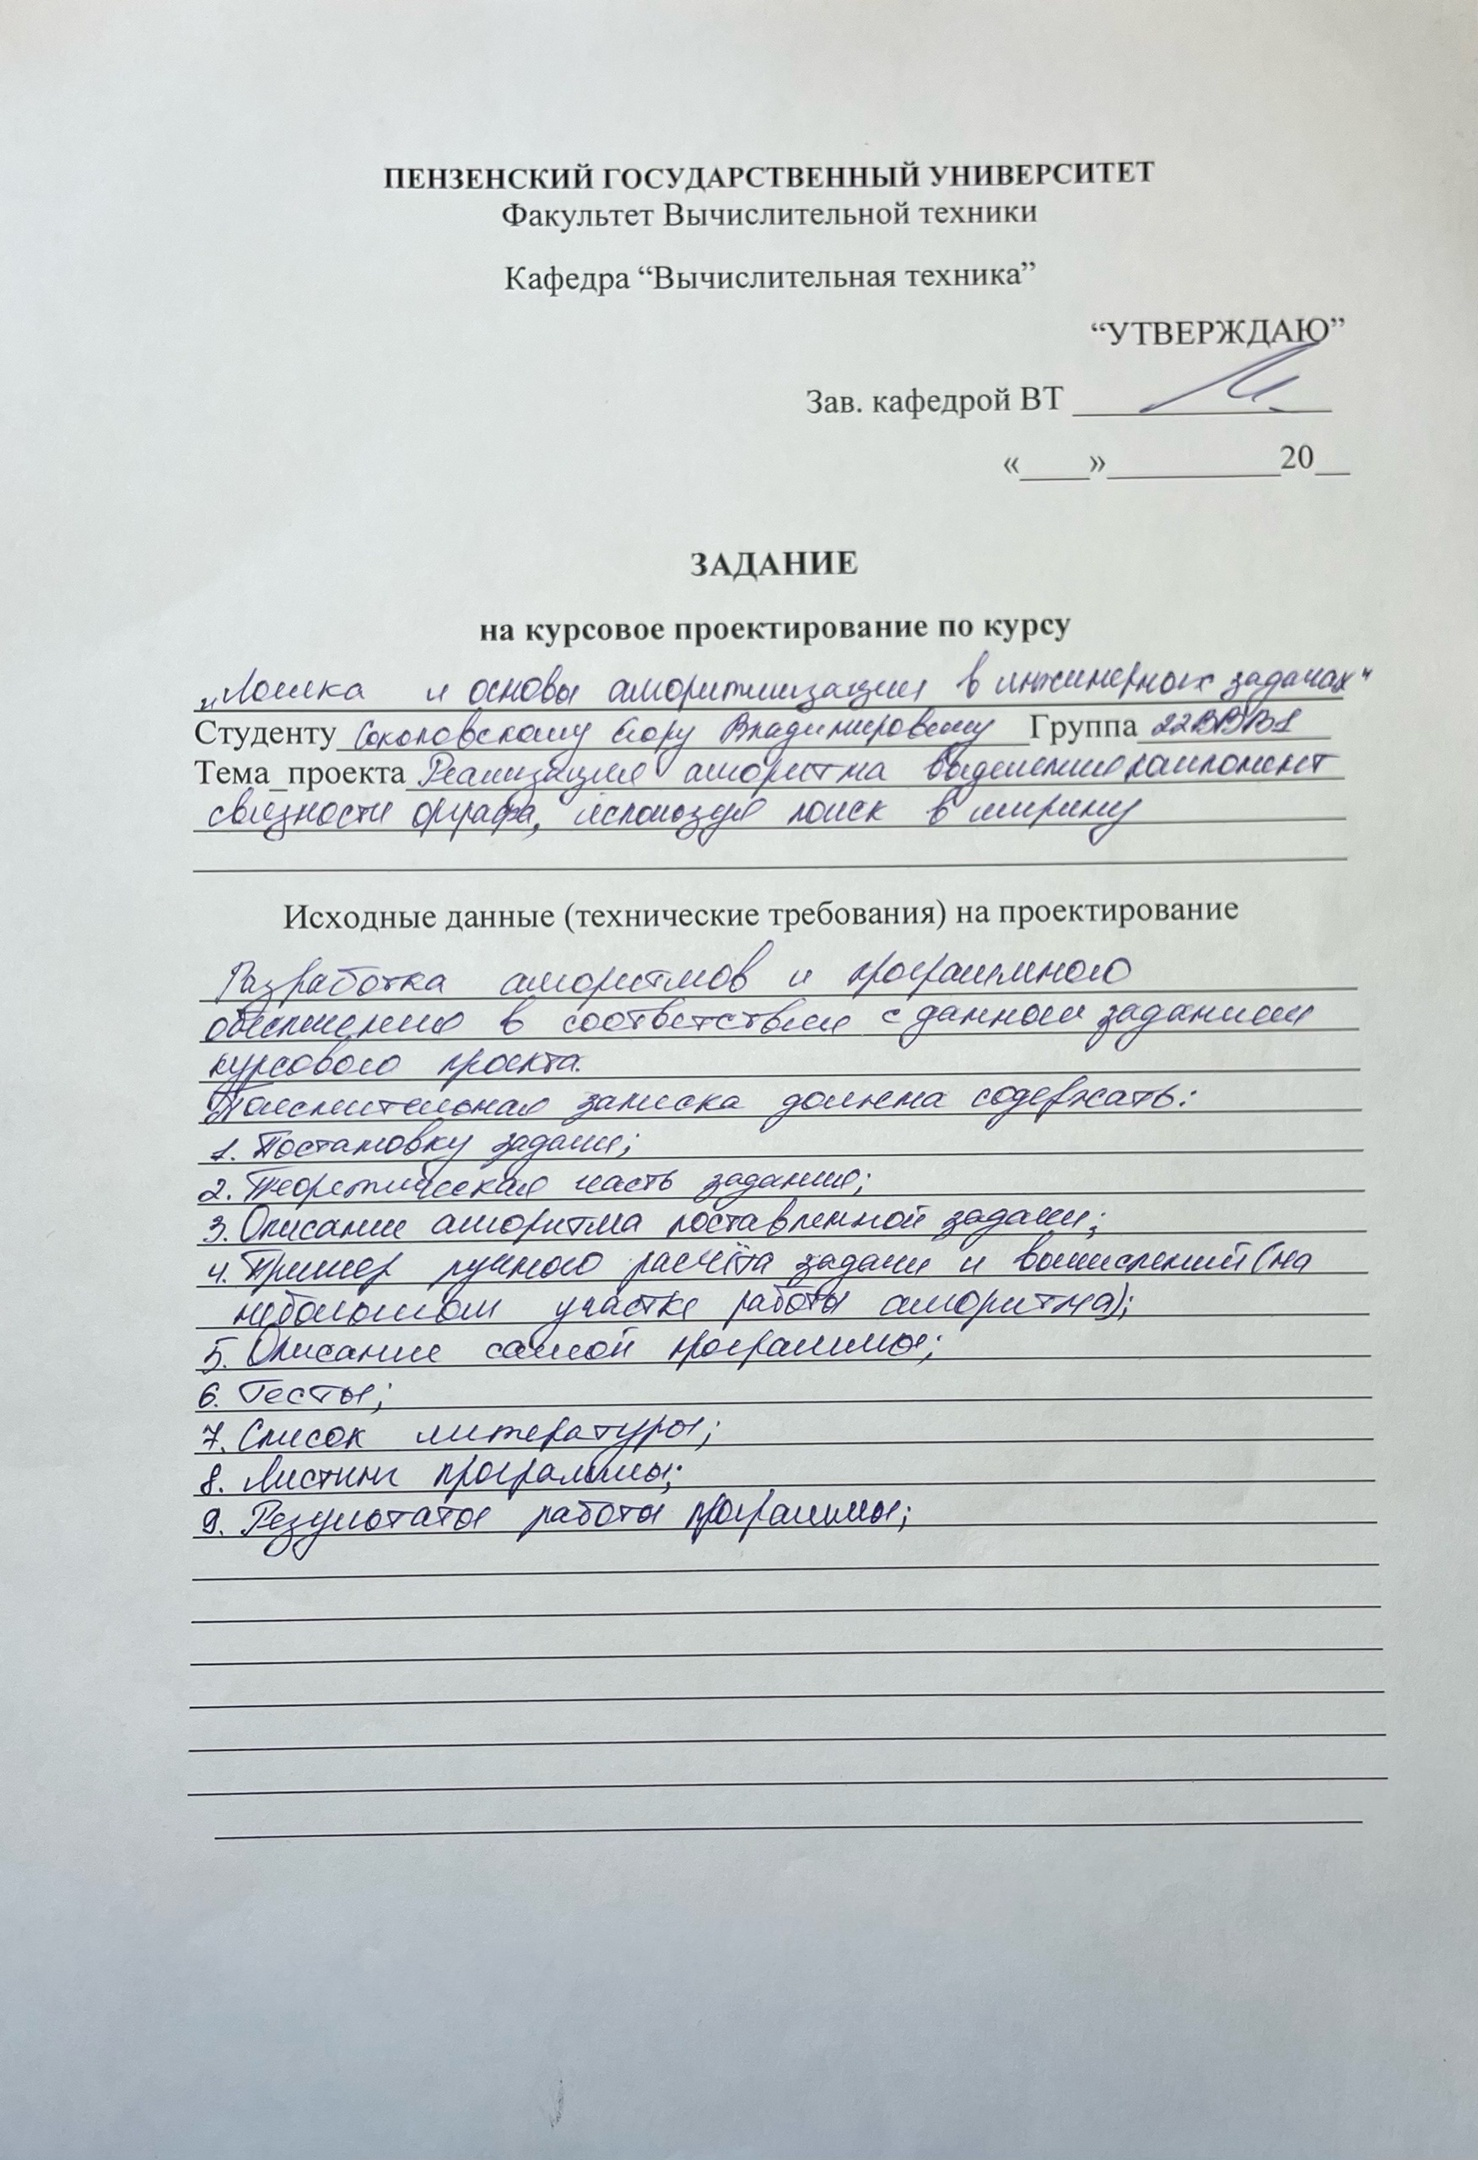 ПЕНЗЕНСКИЙ ГОСУДАРСТВЕННЫЙ УНИВЕРСИТЕТ
Факультет Вычислительной техники
Кафедра “Вычислительная техника”
“УТВЕРЖДАЮ”
Зав. кафедрой ВТ
«____»__________20__
ЗАДАНИЕ
на курсовое проектирование по курсу
„Логика и основы алгоритмизации в инженерных задачах“
Студенту Соколовскому Егору Владимировичу Группа 22ВВВ1
Тема_проекта Реализация алгоритма выделения компонент
связности орграфа, используя поиск в ширину
Исходные данные (технические требования) на проектирование
Разработка алгоритмов и программного
обеспечения в соответствии с данным заданием
курсового проекта.
Пояснительная записка должна содержать:
1. Постановку задачи;
2. Теоретическая часть задания;
3. Описание алгоритма поставленной задачи;
4. Пример ручного расчёта задачи и вычислений (на
небольшом участке работы алгоритма);
5. Описание самой программы;
6. Тесты;
7. Список литературы;
8. Листинг программы;
9. Результаты работы программы;